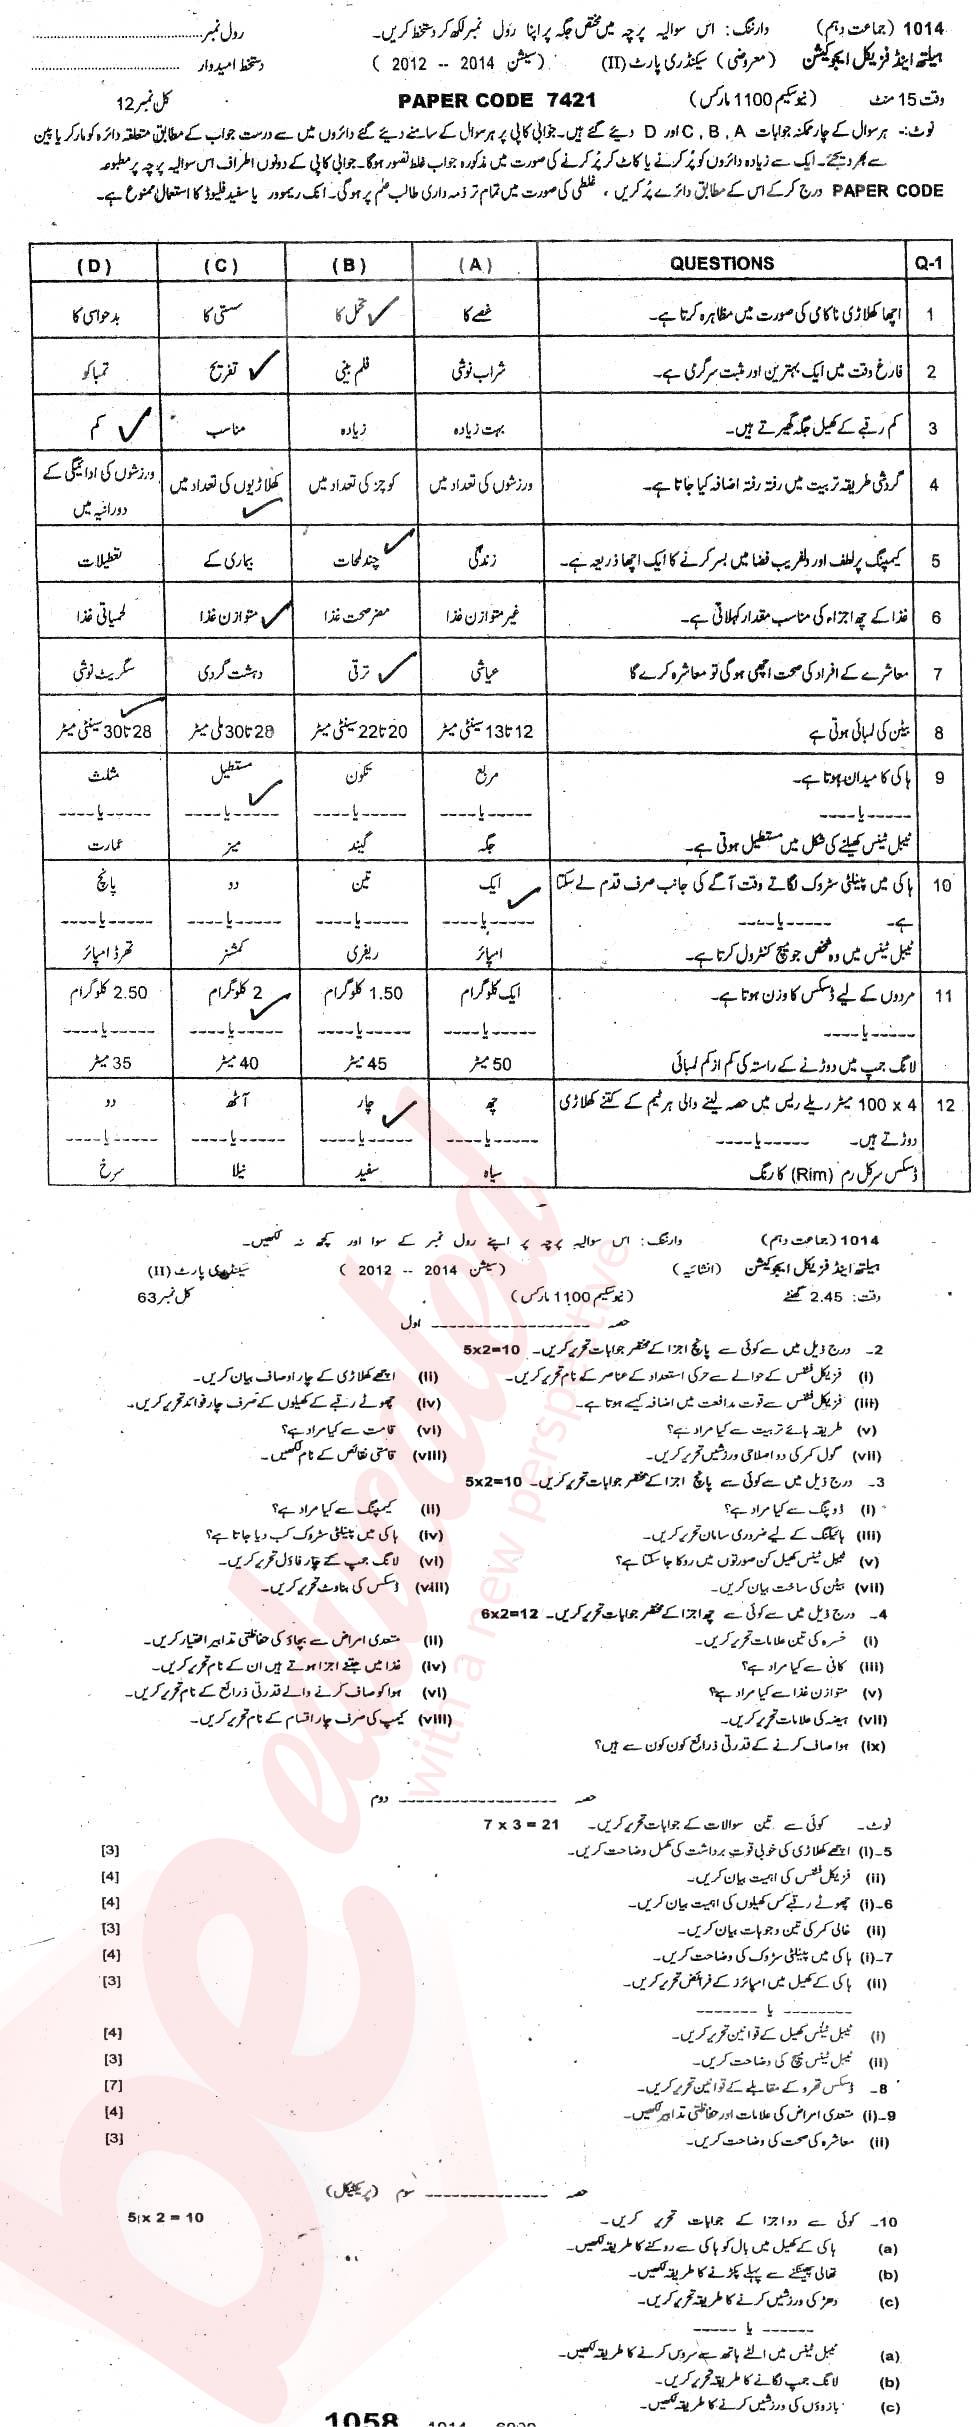 1014 (جماعت دہم) وارننگ: اس سوالیہ پرچہ میں مختص جگہ پر اپنا رول نمبر لکھ کر دستخط کریں۔ رول نمبر
ہیلتھ اینڈ فزیکل ایجوکیشن (معروضی) سیکنڈری پارٹ (II) (سیشن 2014 -- 2012) دستخط امیدوار
وقت 15 منٹ (نیو سکیم 1100 مارکس) PAPER CODE 7421 کل نمبر 12
نوٹ:- ہر سوال کے چار ممکنہ جوابات C, B, A اور D دیئے گئے ہیں۔ جوابی کاپی پر ہر سوال کے سامنے دیئے گئے دائروں میں سے درست جواب کے مطابق متعلقہ دائرہ کو مارکر یا پین
سے بھر دیجئے۔ ایک سے زیادہ دائروں کو پُر کرنے یا کاٹ کر پُر کرنے کی صورت میں مذکورہ جواب غلط تصور ہوگا۔ جوابی کاپی کے دونوں اطراف اس سوالیہ پرچہ پر مطبوعہ
PAPER CODE درج کر کے اس کے مطابق دائرے پُر کریں، غلطی کی صورت میں تمام تر ذمہ داری طالب علم پر ہوگی۔ انک ریموور یا سفید فلیوڈ کا استعمال ممنوع ہے۔
Q-1 QUESTIONS (A) (B) (C) (D)
1 اچھا کھلاڑی ناکامی کی صورت میں مظاہرہ کرتا ہے۔ غصے کا تحمل کا سستی کا بدحواسی کا
2 فارغ وقت میں ایک بہترین اور مثبت سرگرمی ہے۔ شراب نوشی فلم بینی تفریح تمباکو
3 کم رقبے کے کھیل جگہ گھیرتے ہیں۔ بہت زیادہ زیادہ مناسب کم
4 گردشی طریقہ تربیت میں رفتہ رفتہ اضافہ کیا جاتا ہے۔ ورزشوں کی تعداد میں کوچز کی تعداد میں کھلاڑیوں کی تعداد میں ورزشوں کی ادائیگی کے
دورانیہ میں
5 کیمپنگ پرلطف اور دلفریب فضا میں بسر کرنے کا ایک اچھا ذریعہ ہے۔ زندگی چند لمحات بیماری کے تعطیلات
6 غذا کے چھ اجزاء کی مناسب مقدار کہلاتی ہے۔ غیر متوازن غذا مضر صحت غذا متوازن غذا لحمیاتی غذا
7 معاشرے کے افراد کی صحت اچھی ہوگی تو معاشرہ کرے گا عیاشی ترقی دہشت گردی سگریٹ نوشی
8 بیٹن کی لمبائی ہوتی ہے 12 تا 13 سینٹی میٹر 20 تا 22 سینٹی میٹر 28 تا 30 ملی میٹر 28 تا 30 سینٹی میٹر
9 ہاکی کا میدان ہوتا ہے۔ مربع تکون مستطیل مثلث
-----یا---- -----یا---- -----یا---- -----یا---- -----یا----
ٹیبل ٹینس کھیلنے کی شکل میں مستطیل ہوتی ہے۔ جگہ گیند میز عمارت
10 ہاکی میں پینلٹی سٹروک لگاتے وقت آگے کی جانب صرف قدم لے سکتا ایک تین دو پانچ
ہے۔ -----یا---- -----یا---- -----یا---- -----یا---- -----یا----
ٹیبل ٹینس میں وہ شخص جو میچ کنٹرول کرتا ہے۔ امپائر ریفری کمشنر تھرڈ امپائر
11 مردوں کے لیے ڈسکس کا وزن ہوتا ہے۔ ایک کلوگرام 1.50 کلوگرام 2 کلوگرام 2.50 کلوگرام
-----یا---- -----یا---- -----یا---- -----یا---- -----یا----
لانگ جمپ میں دوڑنے کے راستہ کی کم از کم لمبائی 50 میٹر 45 میٹر 40 میٹر 35 میٹر
12 4 x 100 میٹر ریلے ریس میں حصہ لینے والی ہر ٹیم کے کتنے کھلاڑی چھ چار آٹھ دو
دوڑتے ہیں۔ -----یا---- -----یا---- -----یا---- -----یا---- -----یا----
ڈسکس سرکل رم (Rim) کا رنگ سیاہ سفید نیلا سرخ
1014 (جماعت دہم) وارننگ: اس سوالیہ پرچہ پر اپنے رول نمبر کے سوا اور کچھ نہ لکھیں۔
ہیلتھ اینڈ فزیکل ایجوکیشن (انشائیہ) (سیشن 2014 -- 2012) سیکنڈری پارٹ (II)
وقت: 2.45 گھنٹے (نیو سکیم 1100 مارکس) کل نمبر 63
حصہ ------------------ اول
2۔ درج ذیل میں سے کوئی سے پانچ اجزا کے مختصر جوابات تحریر کریں۔ 5x2=10
(i) فزیکل فٹنس کے حوالے سے حرکی استعداد کے عناصر کے نام تحریر کریں۔ (ii) اچھے کھلاڑی کے چار اوصاف بیان کریں۔
(iii) فزیکل فٹنس سے قوت مدافعت میں اضافہ کیسے ہوتا ہے۔ (iv) چھوٹے رقبے کے کھیلوں کے صرف چار فوائد تحریر کریں۔
(v) طریقہ ہائے تربیت سے کیا مراد ہے؟ (vi) قامت سے کیا مراد ہے؟
(vii) گول کمر کی دو اصلاحی ورزشیں تحریر کریں۔ (viii) قامتی نقائص کے نام لکھیں۔
3۔ درج ذیل میں سے کوئی سے پانچ اجزا کے مختصر جوابات تحریر کریں۔ 5x2=10
(i) ڈوپنگ سے کیا مراد ہے؟ (ii) کیمپنگ سے کیا مراد ہے؟
(iii) ہائیکنگ کے لیے ضروری سامان تحریر کریں۔ (iv) ہاکی میں پینلٹی سٹروک کب دیا جاتا ہے؟
(v) ٹیبل ٹینس کھیل کن صورتوں میں روکا جا سکتا ہے؟ (vi) لانگ جمپ کے چار فاؤل تحریر کریں۔
(vii) بیٹن کی ساخت بیان کریں۔ (viii) ڈسکس کی بناوٹ تحریر کریں۔
4۔ درج ذیل میں سے کوئی سے چھ اجزا کے مختصر جوابات تحریر کریں۔ 6x2=12
(i) خسرہ کی تین علامات تحریر کریں۔ (ii) متعدی امراض سے بچاؤ کی حفاظتی تدابیر اختیار کریں۔
(iii) کائی سے کیا مراد ہے؟ (iv) غذا میں جتنے اجزا ہوتے ہیں ان کے نام تحریر کریں۔
(v) متوازن غذا سے کیا مراد ہے؟ (vi) ہوا کو صاف کرنے والے قدرتی ذرائع کے نام تحریر کریں۔
(vii) ہیضہ کی علامات تحریر کریں۔ (viii) کیمپ کی صرف چار اقسام کے نام تحریر کریں۔
(ix) ہوا صاف کرنے کے قدرتی ذرائع کون کون سے ہیں؟
حصہ ------------------ دوم
نوٹ۔ کوئی سے تین سوالات کے جوابات تحریر کریں۔ 7 x 3 = 21
5۔(i) اچھے کھلاڑی کی خوبی قوت برداشت کی مکمل وضاحت کریں۔ [3]
(ii) فزیکل فٹنس کی اہمیت بیان کریں۔ [4]
6۔(i) چھوٹے رقبے کس کھیلوں کی اہمیت بیان کریں۔ [4]
(ii) خالی کمر کی تین وجوہات بیان کریں۔ [3]
7۔(i) ہاکی میں پینلٹی سٹروک کی وضاحت کریں۔ [4]
(ii) ہاکی کے کھیل میں امپائرز کے فرائض تحریر کریں۔ [3]
-------- یا -------
(i) ٹیبل ٹینس کھیل کے قوانین تحریر کریں۔ [4]
(ii) ٹیبل ٹینس میچ کی وضاحت کریں۔ [3]
8۔ ڈسکس تھرو کے مقابلے کے قوانین تحریر کریں۔ [7]
9۔(i) متعدی امراض کی علامات اور حفاظتی تدابیر لکھیں۔ [4]
(ii) معاشرہ کی صحت کی وضاحت کریں۔ [3]
حصہ -------------- سوم (پریکٹیکل)
10۔ کوئی سے دو اجزا کے جوابات تحریر کریں۔ 5 x 2 = 10
(a) ہاکی کے کھیل میں بال کو ہاکی سے روکنے کا طریقہ لکھیں۔
(b) تھالی پھینکنے سے پہلے پکڑنے کا طریقہ لکھیں۔
(c) دھڑ کی ورزشیں کرنے کا طریقہ تحریر کریں۔
------ یا -----
(a) ٹیبل ٹینس میں الٹے ہاتھ سے سروس کرنے کا طریقہ لکھیں۔
(b) لانگ جمپ لگانے کا طریقہ تحریر کریں۔
(c) بازوؤں کی ورزشیں کرنے کا طریقہ تحریر کریں۔
1058
beeducated
with a new perspective